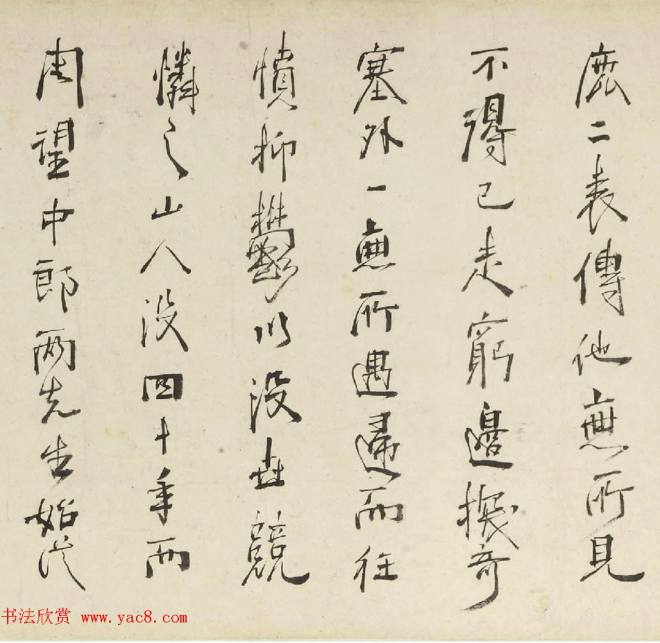 鹿二表傳他無所見
不得已走窮邊探奇
塞外一無所遇邊而往
憤抑鬱以没世競
憐之山人没四十年而
周望中郎兩先生始從
书法欣赏 www.yac8.com